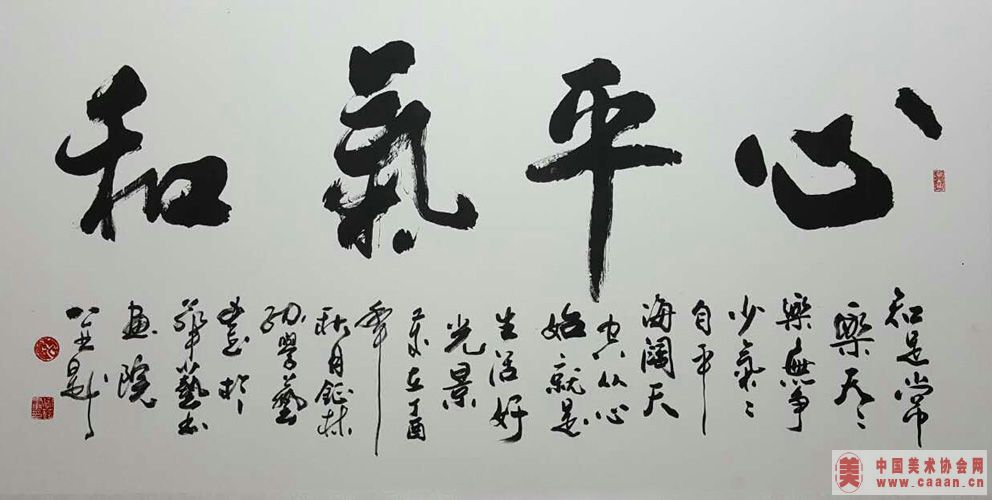 心平氣和
知足常
樂天〻
樂無爭
少氣〻
自平
海闊天
空從心
始就是
生活好
光景
歲在丁酉
年
秋月鉦林
學藝
書於
華藝書
畫院
中国美术协会网
www.caaan.cn
美